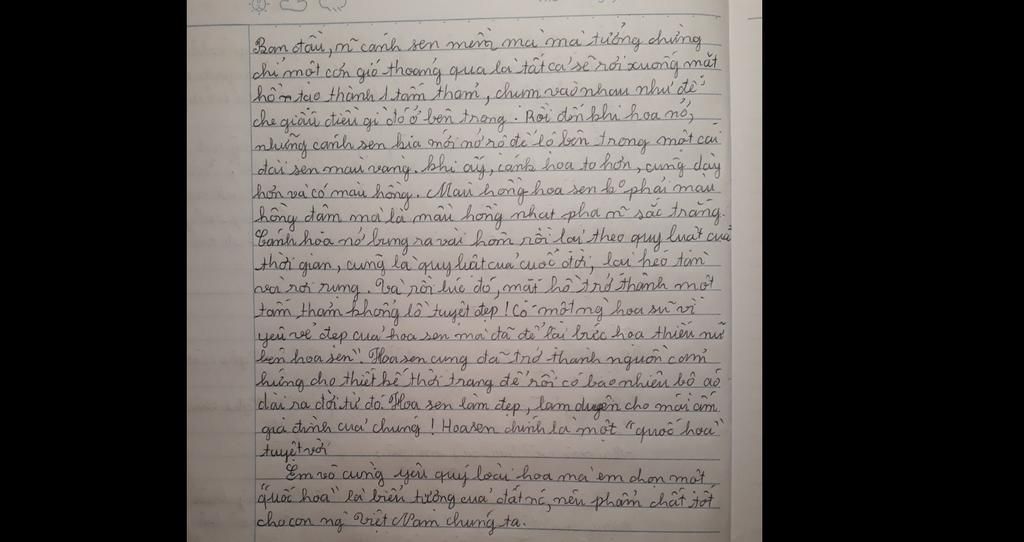 Ban đầu, n~ cánh sen mềm mại mà tưởng chừng
chỉ một cơn gió thoảng qua là tất cả sẽ rơi xuống mặt
hồ tạo thành 1 tấm thảm, chụm vào nhau như để
che giấu điều gì đó ở bên trong. Rồi đến khi hoa nở,
những cánh sen kia mới nở rộ để lộ bên trong một cái
đài sen màu vàng. Khi ấy, cánh hoa to hơn, cũng dày
hơn và có màu hồng. Màu hồng hoa sen ko phải màu
hồng đậm mà là màu hồng nhạt pha n~ sắc trắng.
Cánh hoa nở bung ra vài hôm rồi lại theo quy luật của
thời gian, cũng là quy luật của cuộc đời, lại héo tàn
và rơi rụng. Và rồi lúc đó, mặt hồ trở thành một
tấm thảm khổng lồ tuyệt đẹp! Có một ng` họa sĩ vì
yêu vẻ đẹp của hoa sen mà đã để lại bức họa thiếu nữ
bên hoa sen". Hoa sen cũng đã trở thành nguồn cảm
hứng cho thiết kế thời trang để rồi có bao nhiêu bộ áo
dài ra đời từ đó. Hoa sen làm đẹp, làm duyên cho mái ấm
gia đình của chúng! Hoa sen chính là một "quốc hoa"
tuyệt vời
Em vô cùng yêu quý loài hoa mà em chọn một
"quốc hoa" là biểu tượng của đất nc, nên phẩm chất tốt
cho con ng` Việt Nam chúng ta.